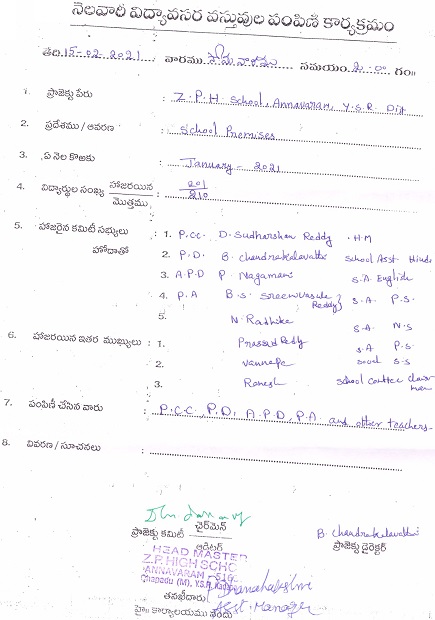 నెలవారీ విద్యావసర వస్తువుల పంపిణి కార్యక్రమం
తేది: 15-02-2021 వారము సోమవారము సమయం 2-00 గం॥
1. ప్రాజెక్టు పేరు : Z.P.H School, Annavaram, Y.S.R Dist
2. ప్రదేశము / ఆవరణ : School Premises
3. ఏ నెల కొఱకు : January - 2021
4. విద్యార్థుల సంఖ్య హాజరయిన / మొత్తము : 201 / 210
5. హాజరైన కమిటీ సభ్యులు : 1. P.CC. D. Sudharshan Reddy . H.M
హోదాతో 2. P.D. B. Chandrakalavathi School Asst. Hindi
3. A.P.D P. Nagamani S.A. English
4. P.A B.S. Sreenivasula Reddy } S.A. P.S.
5. N. Radhika S.A - N.S
6. హాజరయిన ఇతర ముఖ్యులు : 1. Prasad Reddy S.A P.S
2. S.S
3. Ramesh School
7. పంపిణీ చేసిన వారు : P.C.C, P.D, A.P.D, P.A. and other teachers.
8. వివరణ / సూచనలు :
ఛైర్‌మెన్
ప్రాజెక్టు కమిటీ
ఆడిటర్
B. Chandrakalavathi
ప్రాజెక్టు డైరెక్టర్
HEAD MASTER
Z.P. HIGH SCHO
ANNAVARAM - 516
Chapadu (M), YSR Kadapa
తనఖీదారు
Asst. Manager
హై॥ కార్యాలయము నందు